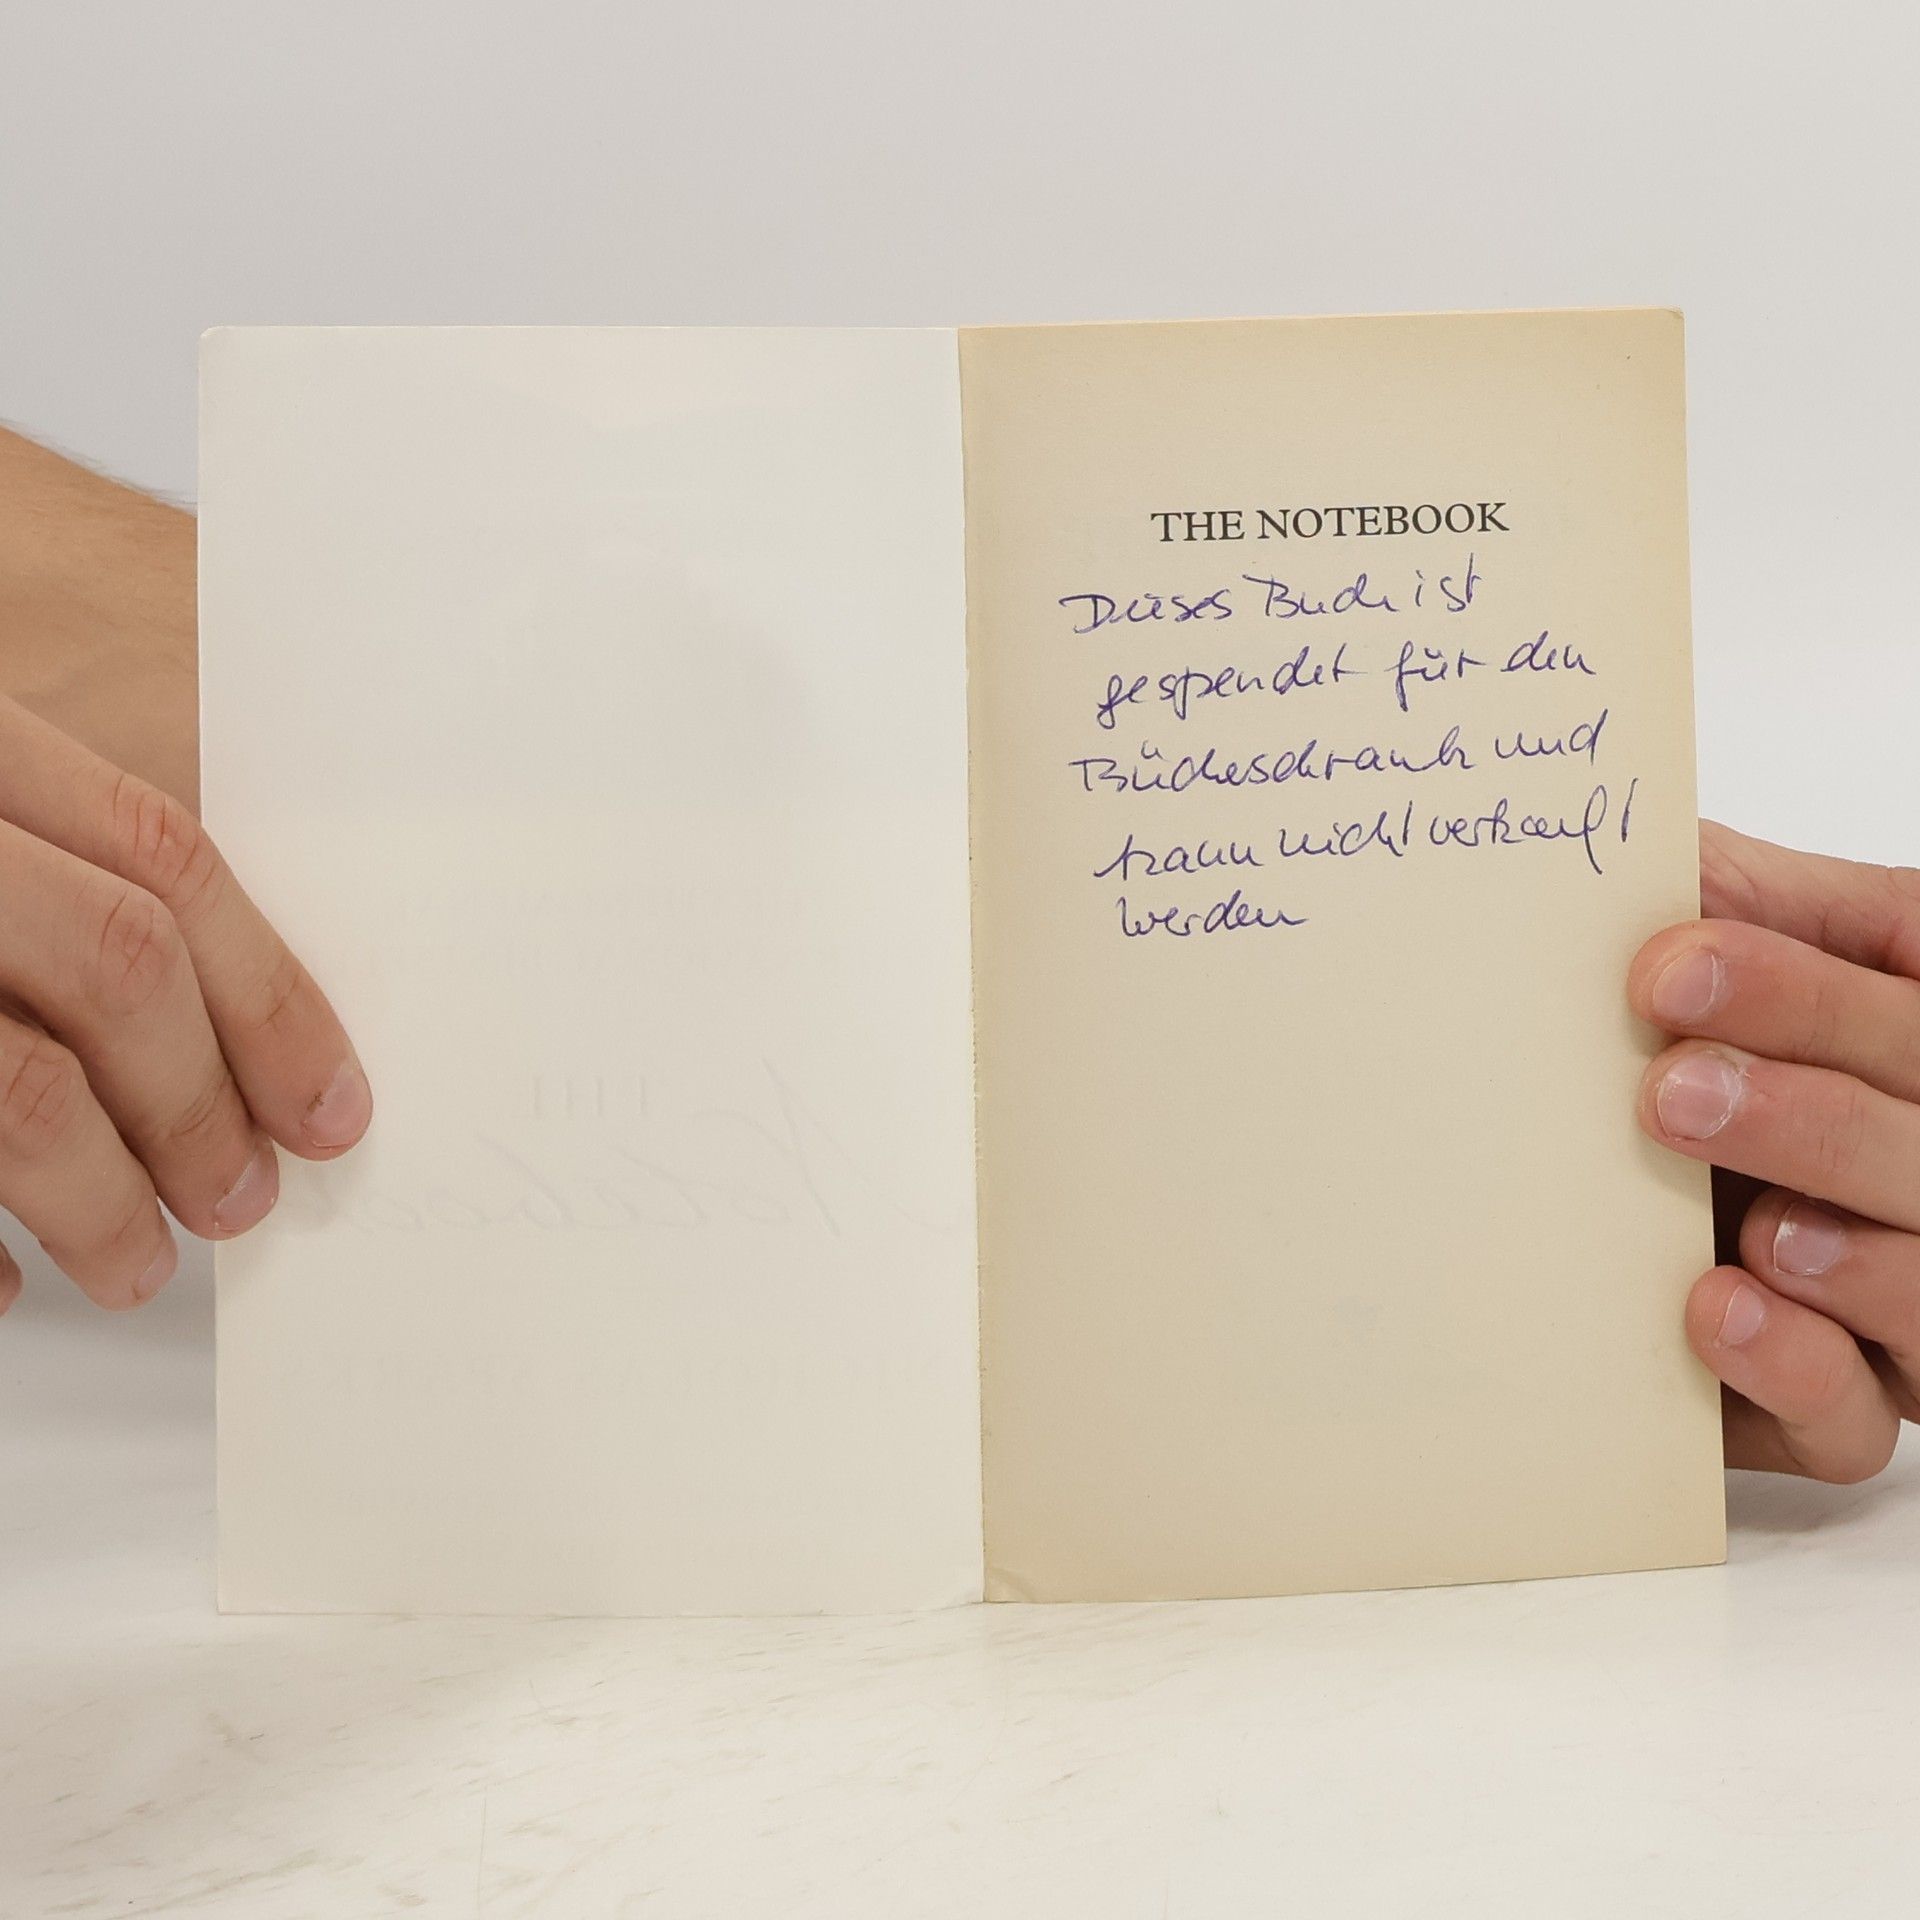 THE NOTEBOOK
Dieses Buch ist
gespendet für den
Bücherschrank und
kann nicht verkauft
werden